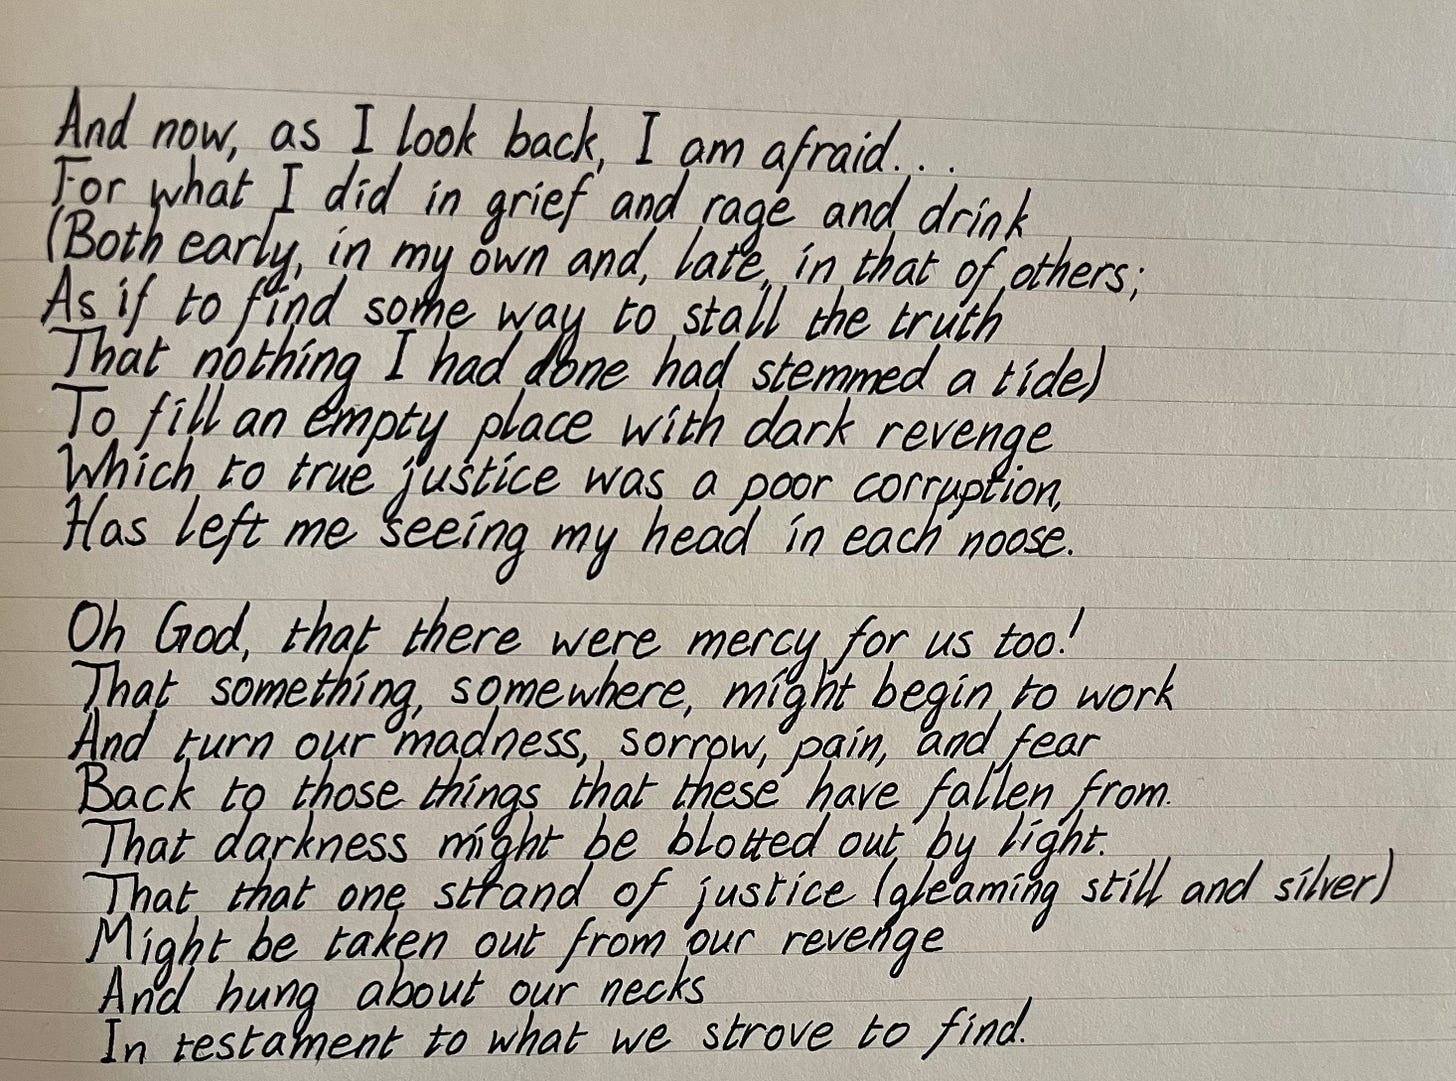 And now, as I look back, I am afraid...
For what I did in grief and rage and drink
(Both early, in my own and, late, in that of others;
As if to find some way to stall the truth
That nothing I had done had stemmed a tide)
To fill an empty place with dark revenge
Which to true justice was a poor corruption,
Has left me seeing my head in each noose.
Oh God, that there were mercy for us too!
That something, somewhere, might begin to work
And turn our madness, sorrow, pain, and fear
Back to those things that these have fallen from.
That darkness might be blotted out by light.
That that one strand of justice (gleaming still and silver)
Might be taken out from our revenge
And hung about our necks
In testament to what we strove to find.